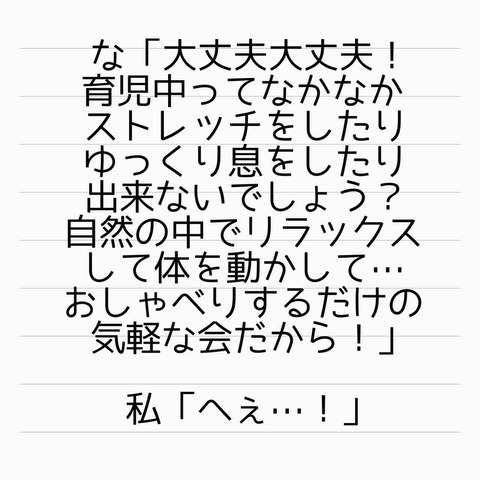 な「大丈夫大丈夫！
育児中ってなかなか
ストレッチをしたり
ゆっくり息をしたり
出来ないでしょう？
自然の中でリラックス
して体を動かして…
おしゃべりするだけの
気軽な会だから！」
私「へぇ…！」